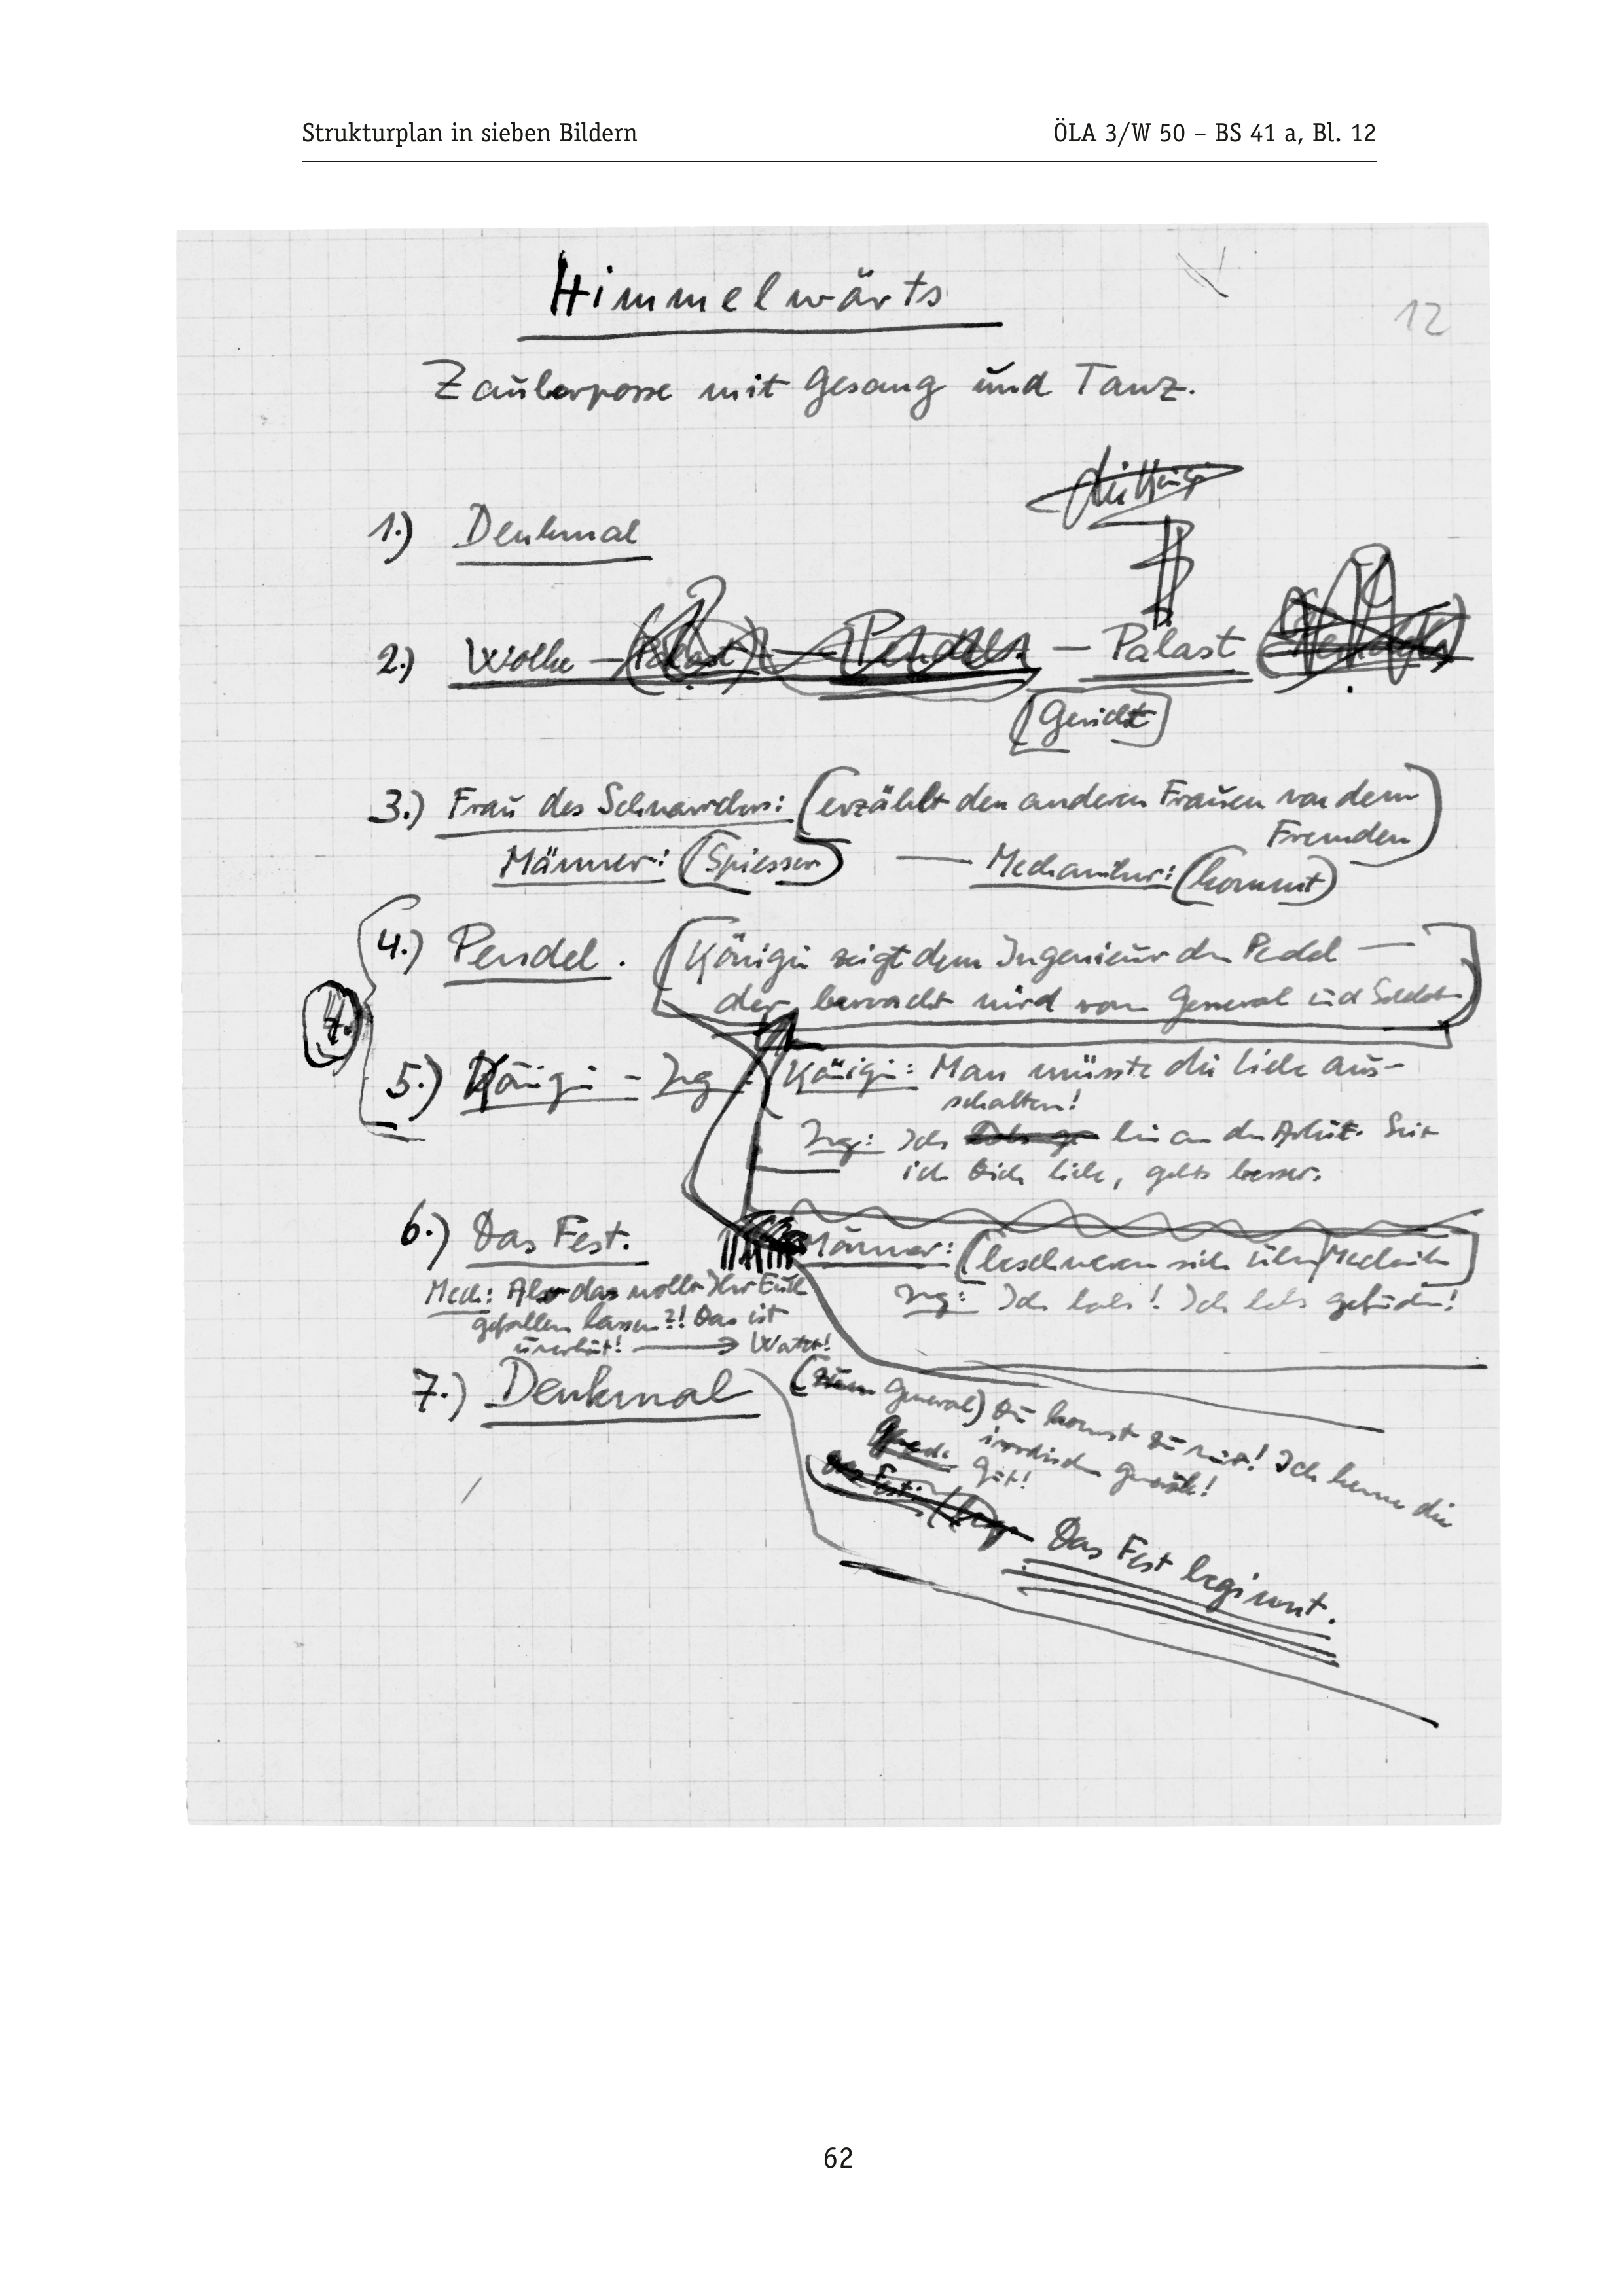 Strukturplan in sieben Bildern
ÖLA 3/W 50 – BS 41 a, Bl. 12
Himmelwärts
12
Zauberposse mit Gesang und Tanz.
1.) Denkmal
2.) Wolke – – Palast
(Gericht)
3.) Frau des Schnarchers: (erzählt den anderen Frauen von dem
Fremden)
Männer: (Spiesser) — Mechaniker: (kommt)
4.) Pendel. [Königin zeigt dem Ingenieur den Pendel —
der bewacht wird vom General und Soldaten]
4.
5.) Königin – Ing: Königin: Man müsste die Liebe aus-
schalten!
Ing: Ich bin an der Arbeit. Seit
ich Dich liebe, gehts besser.
6.) Das Fest.
Männer: (beschweren sich über Mechanik)
Ing: Ich habs! Ich habs gefunden!
Mech: Also das wollt Ihr Euch
gefallen lassen?! Das ist
unerhört! → Watte!
7.) Denkmal
(zum General) Du kommst zu mir! Ich kenne die
irdischen
Gut!
Das Fest beginnt.
62